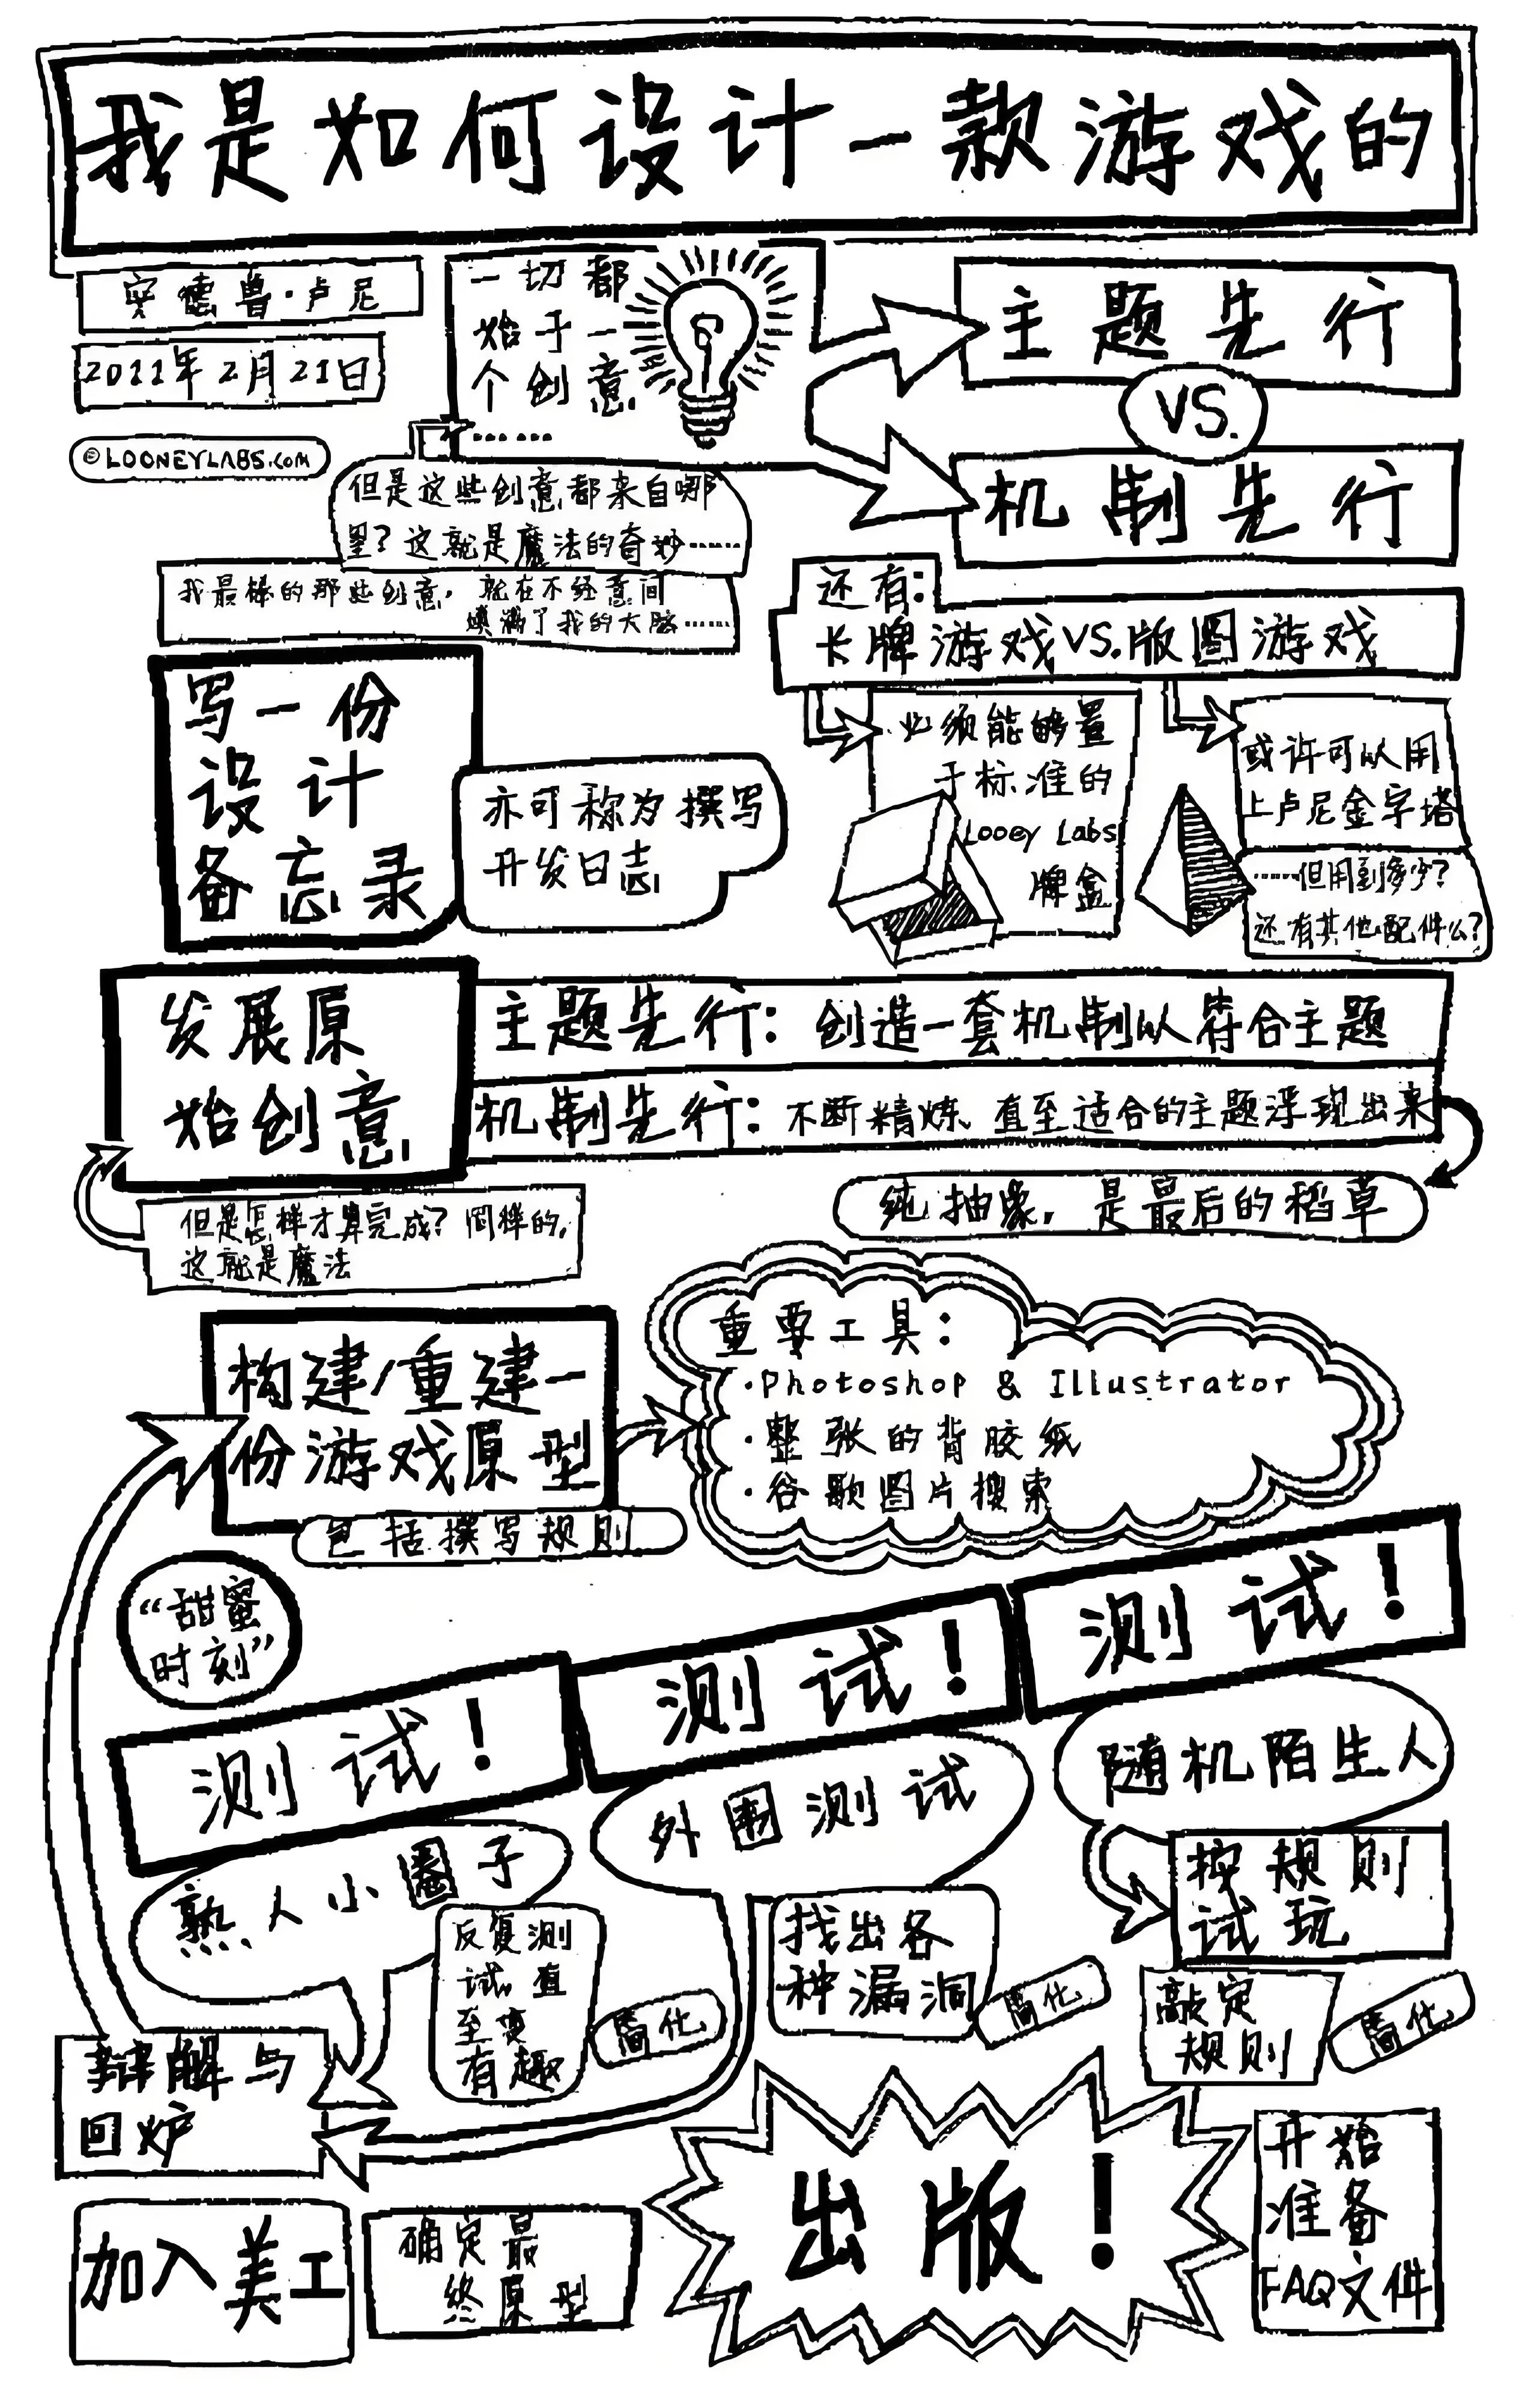 我是如何设计一款游戏的
安德鲁·卢尼
2011年2月21日
©LOONEYLABS.com
一切都
始于一
个创意
……
但是这些创意都来自哪
里?这就是魔法的奇妙……
我最棒的那些创意,就在不经意间
填满了我的大脑……
主题先行
VS.
机制先行
还有:
卡牌游戏VS.版图游戏
必须能够置
于标准的
Looey Labs
牌盒
或许可以用
上卢尼金字塔
……但用到多少?
还有其他配件么?
写一份
设计
备忘录
亦可称为撰写
开发日志
发展原
始创意
主题先行:创造一套机制以符合主题
机制先行:不断精炼、直至适合的主题浮现出来
纯抽象,是最后的稻草
但是怎样才算完成?同样的,
这就是魔法
构建/重建一
份游戏原型
包括撰写规则
重要工具:
·Photoshop & Illustrator
·整张的背胶纸
·谷歌图片搜索
“甜蜜
时刻”
测试!
测试!
测试!
熟人小圈子
外围测试
随机陌生人
反复测
试,直
至变
有趣
简化
找出各
种漏洞
简化
按规则
试玩
敲定
规则
简化
辩解与
回炉
加入美工
确定最
终原型
出版!
开始
准备
FAQ文件